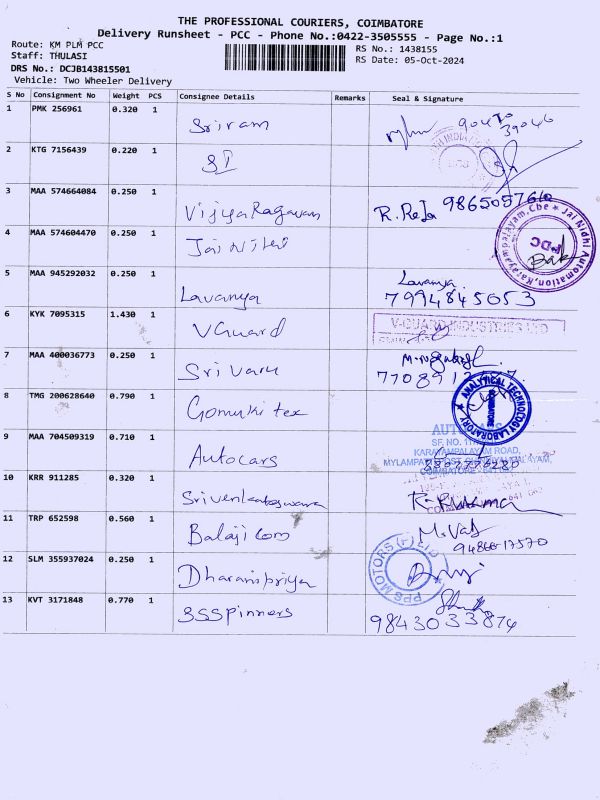 THE PROFESSIONAL COURIERS, COIMBATORE
Delivery Runsheet - PCC - Phone No.:0422-3505555 - Page No.:1
Route: KM PLM PCC
Staff: THULASI
DRS No.: DCJB143815501
Vehicle: Two Wheeler Delivery
RS No.: 1438155
RS Date: 05-Oct-2024
S No Consignment No Weight PCS Consignee Details Remarks Seal & Signature
1 PMK 256961 0.320 1 Sriram 90470
39046
2 KTG 7156439 0.220 1 SI
3 MAA 574664084 0.250 1 Vijiya Ragavan R. Reka 9865057610
4 MAA 574604470 0.250 1 Jai Nidhi
Jai Nidhi Automation, Karayampalayam, Cbe
5 MAA 945292032 0.250 1 Lavanya Lavanya
7994845053
6 KYK 7095315 1.430 1 VGuard
V-GUARD INDUSTRIES LTD
7 MAA 400036773 0.250 1 Sri varu
8 TMG 200628640 0.790 1 Gomuki tex
ANALYTICAL TECHNOLOGY LABORATORY
9 MAA 704509319 0.710 1 Autocars
KARAYAMPALAYAM ROAD,
10 KRR 911285 0.320 1 Srivenkateswara
11 TRP 652598 0.560 1 Balaji com
94866-17570
12 SLM 355937024 0.250 1 Dharanipriya
PPS MOTORS (P) LTD
13 KVT 3171848 0.770 1 SSSpinners
9843033874